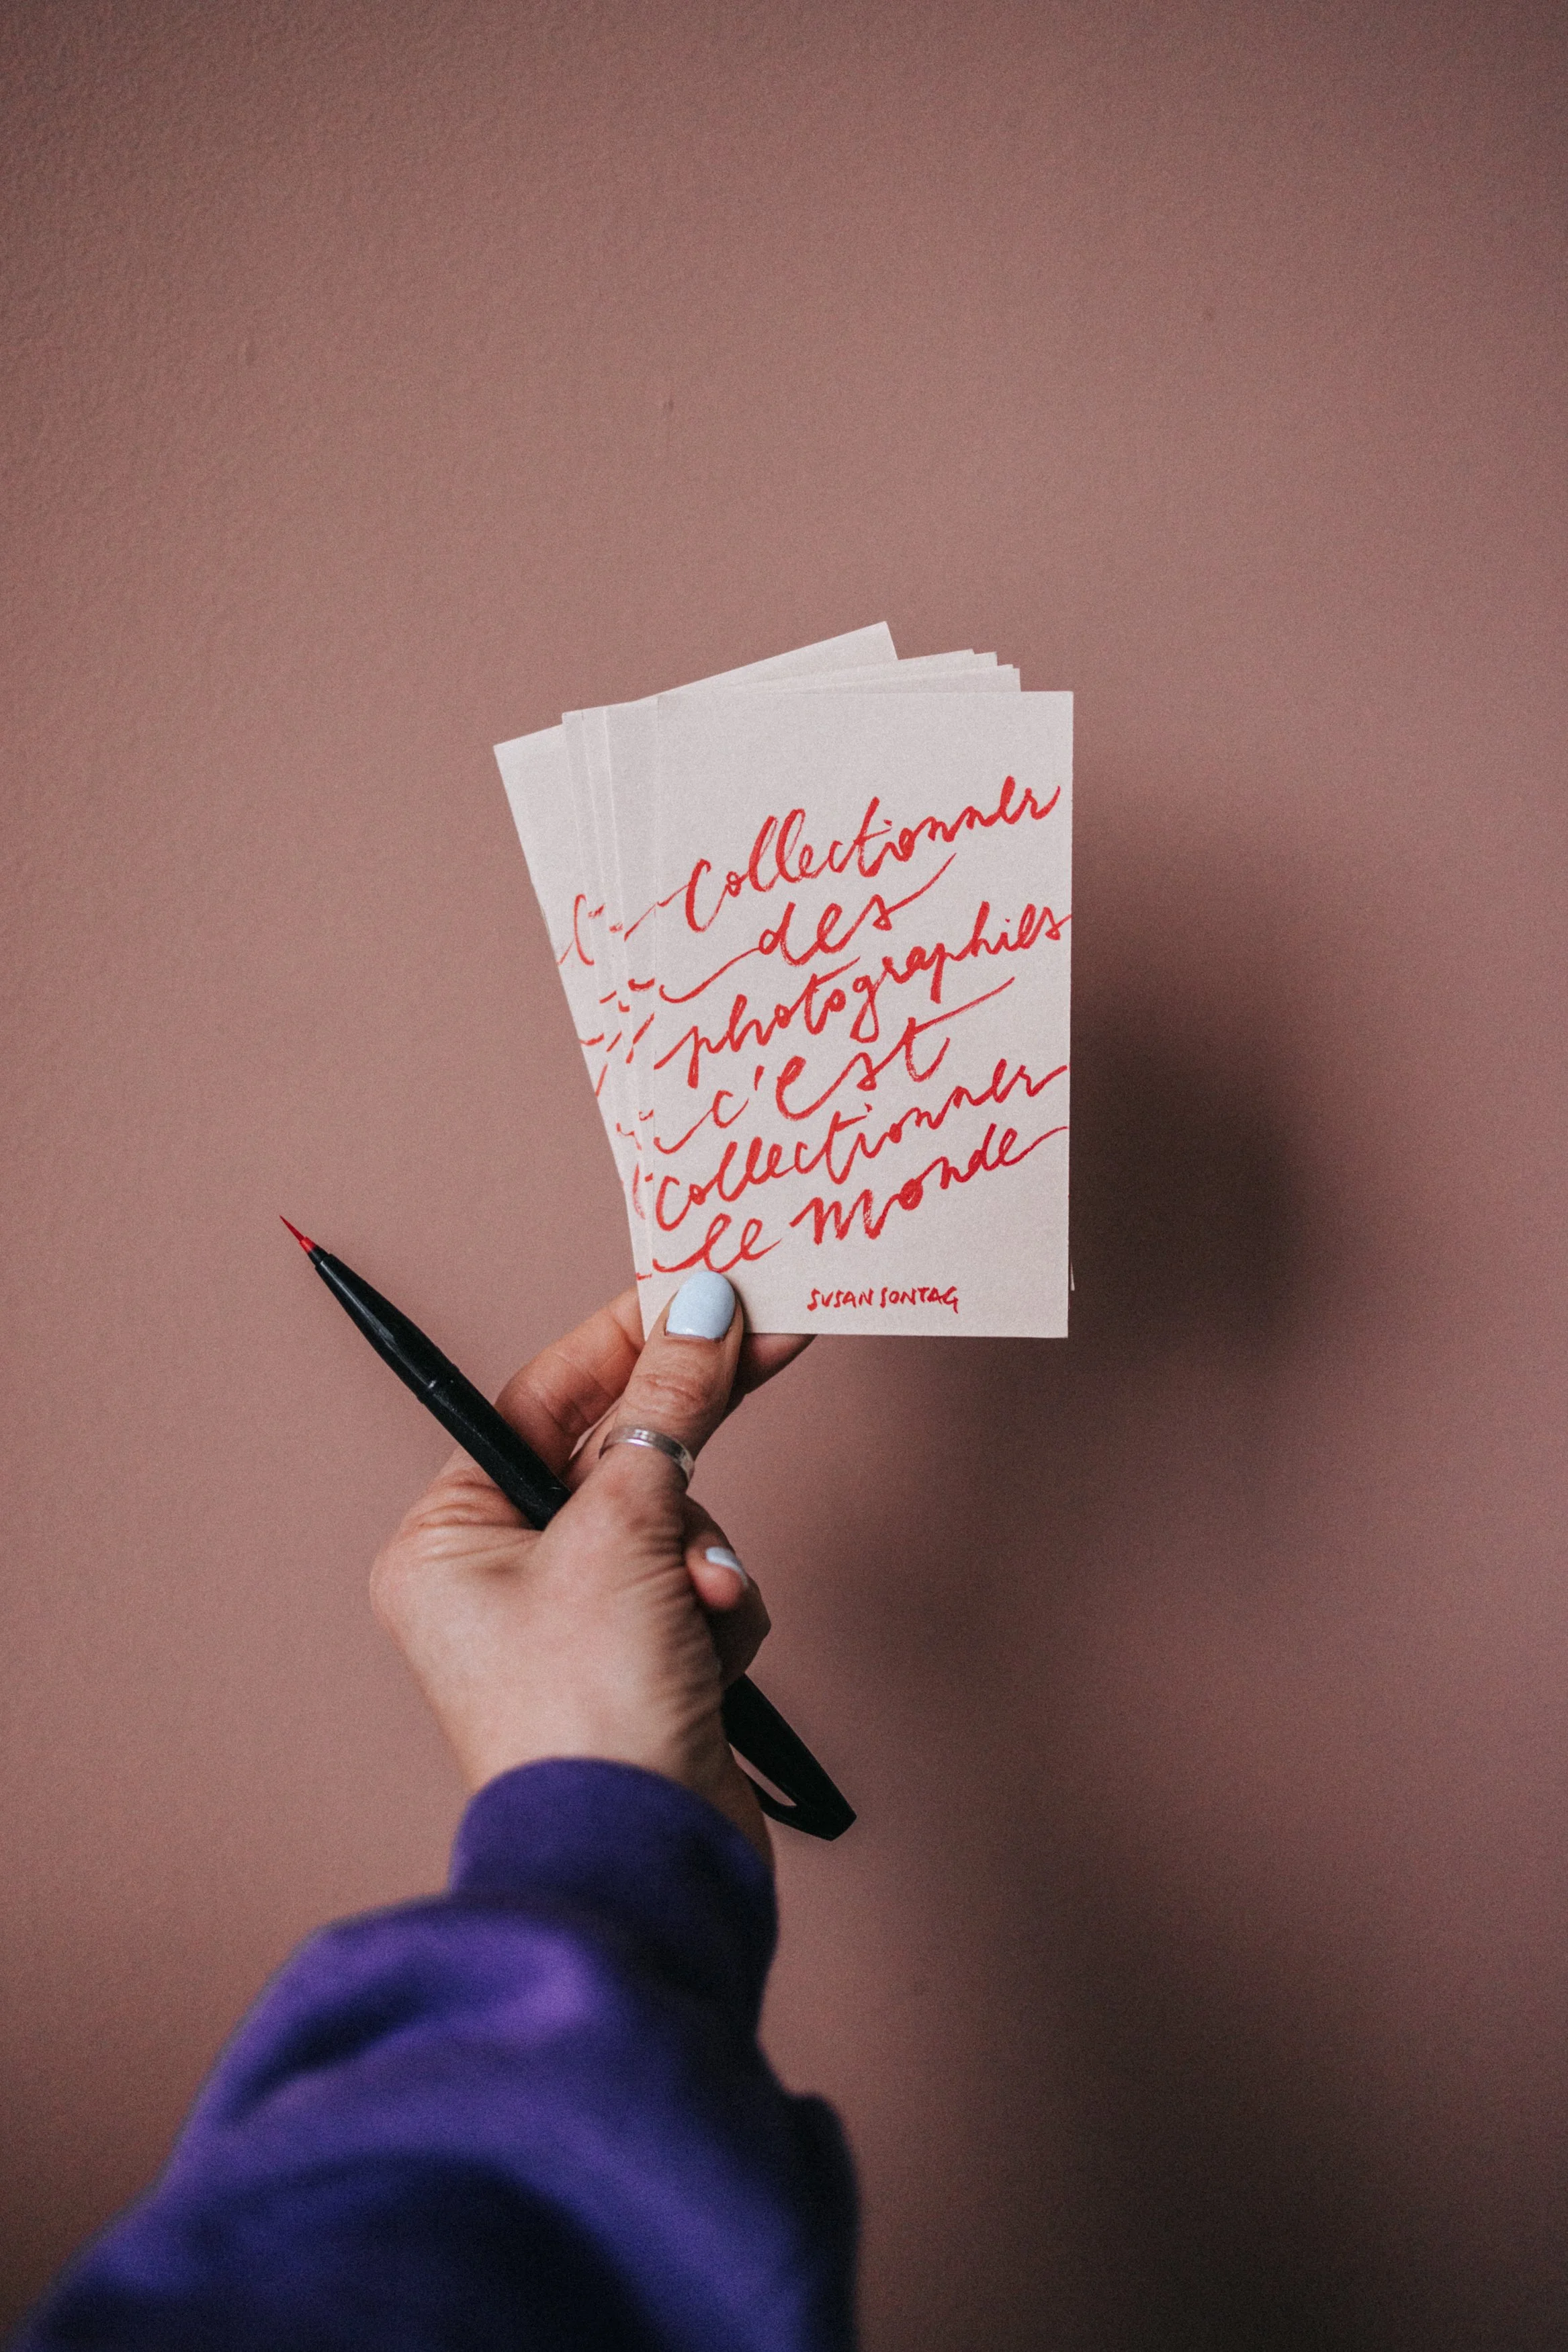 Collectionner
des
photographies
c'est
collectionner
le monde
SUSAN SONTAG